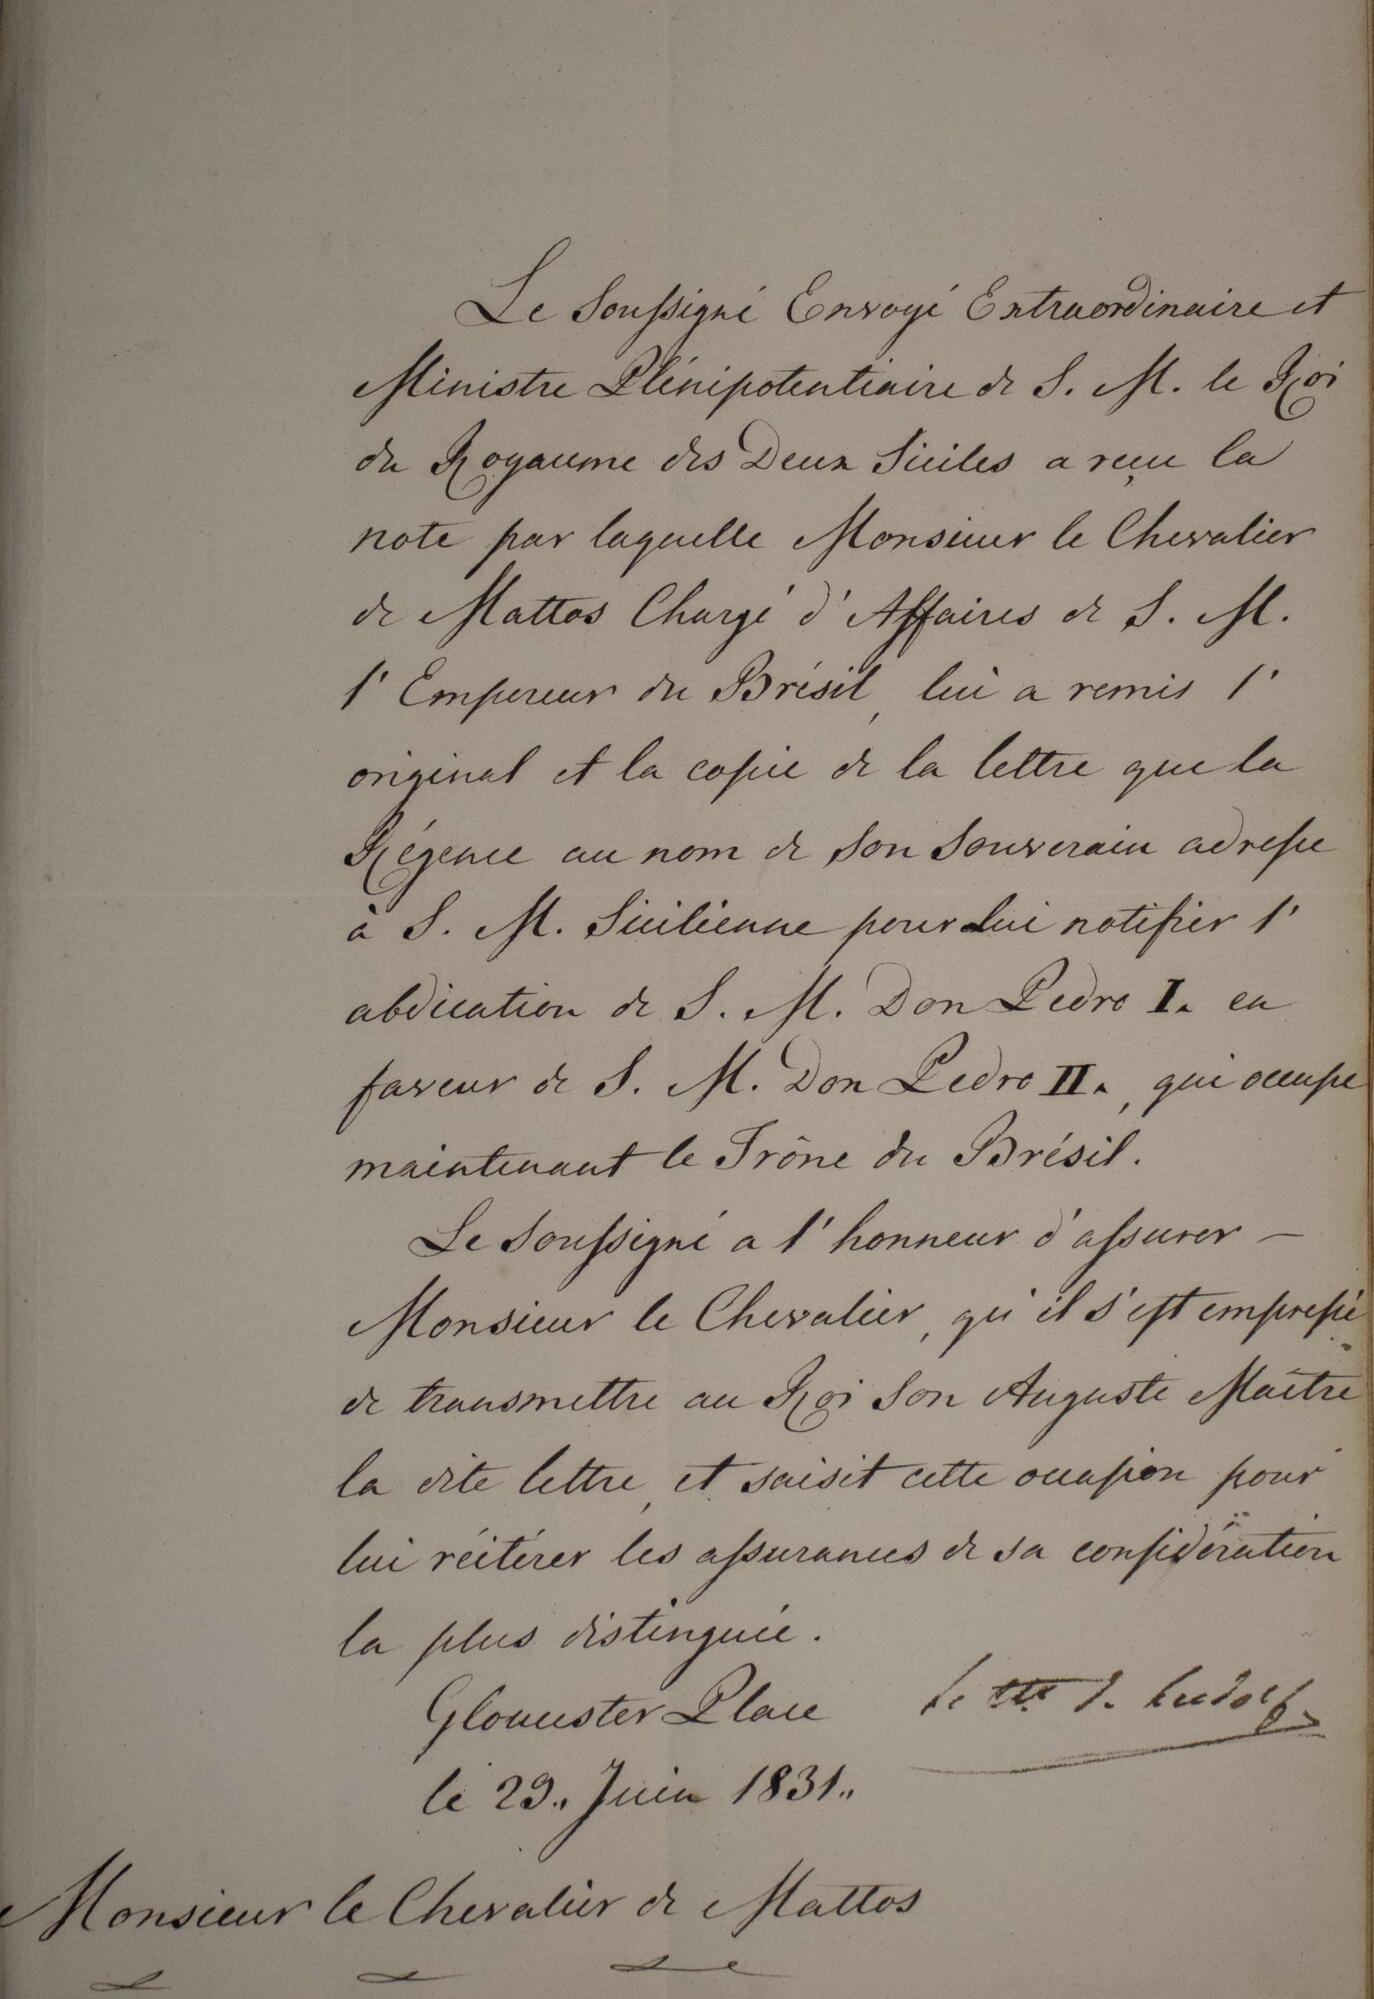 Le Soussigné Envoyé Extraordinaire et
Ministre Plénipotentiaire de S. M. le Roi
du Royaume des Deux Siciles a reçu la
note par laquelle Monsieur le Chevalier
de Mattos Chargé d'Affaires de S. M.
l'Empereur du Brésil, lui a remis l'
original et la copie de la lettre que la
Régence au nom de son Souverain adresse
à S. M. Sicilienne pour lui notifier l'
abdication de S. M. Don Pedro I. en
faveur de S. M. Don Pedro II., qui occupe
maintenant le Trône du Brésil.
Le Soussigné a l'honneur d'assurer –
Monsieur le Chevalier, qu'il s'est empressé
de transmettre au Roi son Auguste Maître
la dite lettre, et saisit cette occasion pour
lui réitérer les assurances de sa considération
la plus distinguée.
Gloucester Place
Le Cte. de Ludolf
le 29. Juin 1831.
Monsieur le Chevalier de Mattos